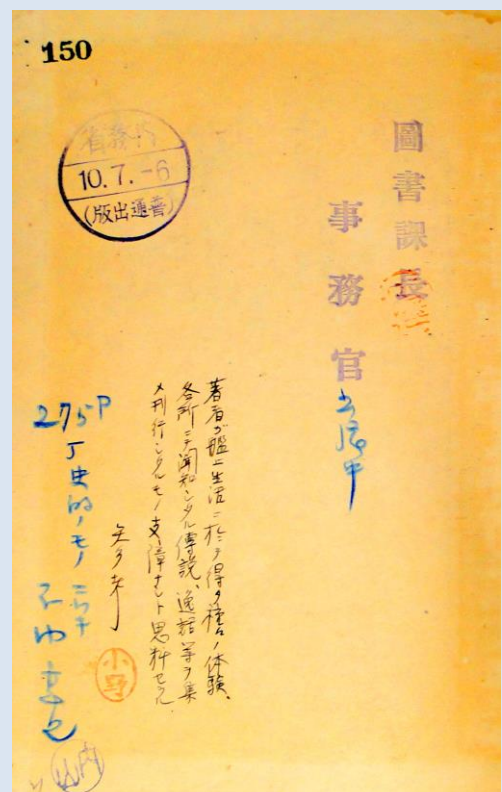 150
内務省
10.7.-6
(普通出版)
圖書課長
事務官
著者ガ艦上生活ニ於テ得タ種々ノ体験、
各所ニテ聞知シタル傳説、逸話等ヲ集
メ刊行シタルモノ支障ナシト思料セラル
小野
275P
内山